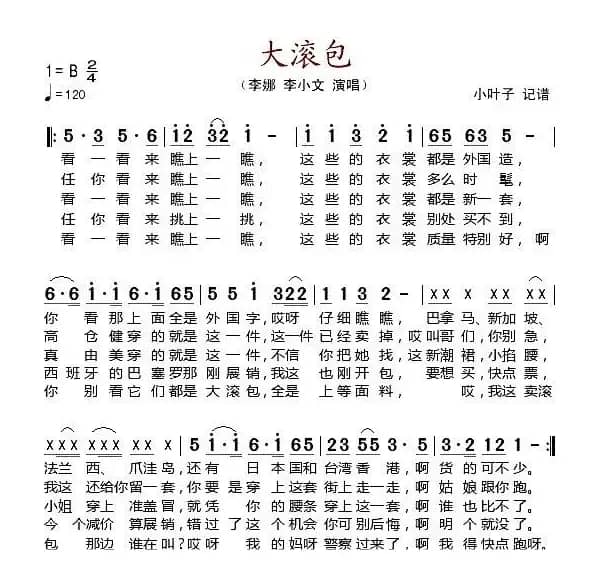 大滚包
1=B 2/4
♩=120
（李娜 李小文 演唱）
小叶子 记谱
‖: 5·3 5·6 | i̇2̇ 3̇2̇ i̇ - | i̇ i̇ 3̇ 2̇ i̇ | 65 63 5 - |
看一看来瞧上一瞧，这些的衣裳都是外国造，
任你看来瞧上一瞧，这些的衣裳多么时髦，
看一看来瞧上一瞧，这些的衣裳都是新一套，
任你看来挑上一挑，这些的衣裳别处买不到，
看一看来瞧上一瞧，这些的衣裳质量特别好，啊
6·6 i̇·i̇ 6·i̇ 65 | 5 5 1 322 | 1 1 3 2 - | x x x x x x |
你看那上面全是外国字，哎呀 仔细瞧瞧，巴拿马、新加坡、
高仓健穿的就是这一件，这一件已经卖掉，哎叫哥们，你别急，
真由美穿的就是这一套，不信你把她找，这新潮裙，小掐腰，
西班牙的巴塞罗那刚展销，我这也刚开包，要想买，快点票，
你别看它们都是大滚包，全是上等面料，哎，我这卖滚
x x x x x x | 5 i̇·i̇ 6·i̇ 65 | 23 55 3·5 | 3·2 12 1 - :‖
法兰西、爪洼岛，还有日本国和台湾香港，啊货的可不少。
我这还给你留一套，你要是穿上这套街上走一走，啊姑娘跟你跑。
小姐穿上准盖冒，就凭你的腰条穿上这一套，啊谁也比不了。
今个减价算展销，错过了这个机会你可别后悔，啊明个就没了。
包那边谁在叫？哎呀我的妈呀警察过来了，啊我得快点跑呀。